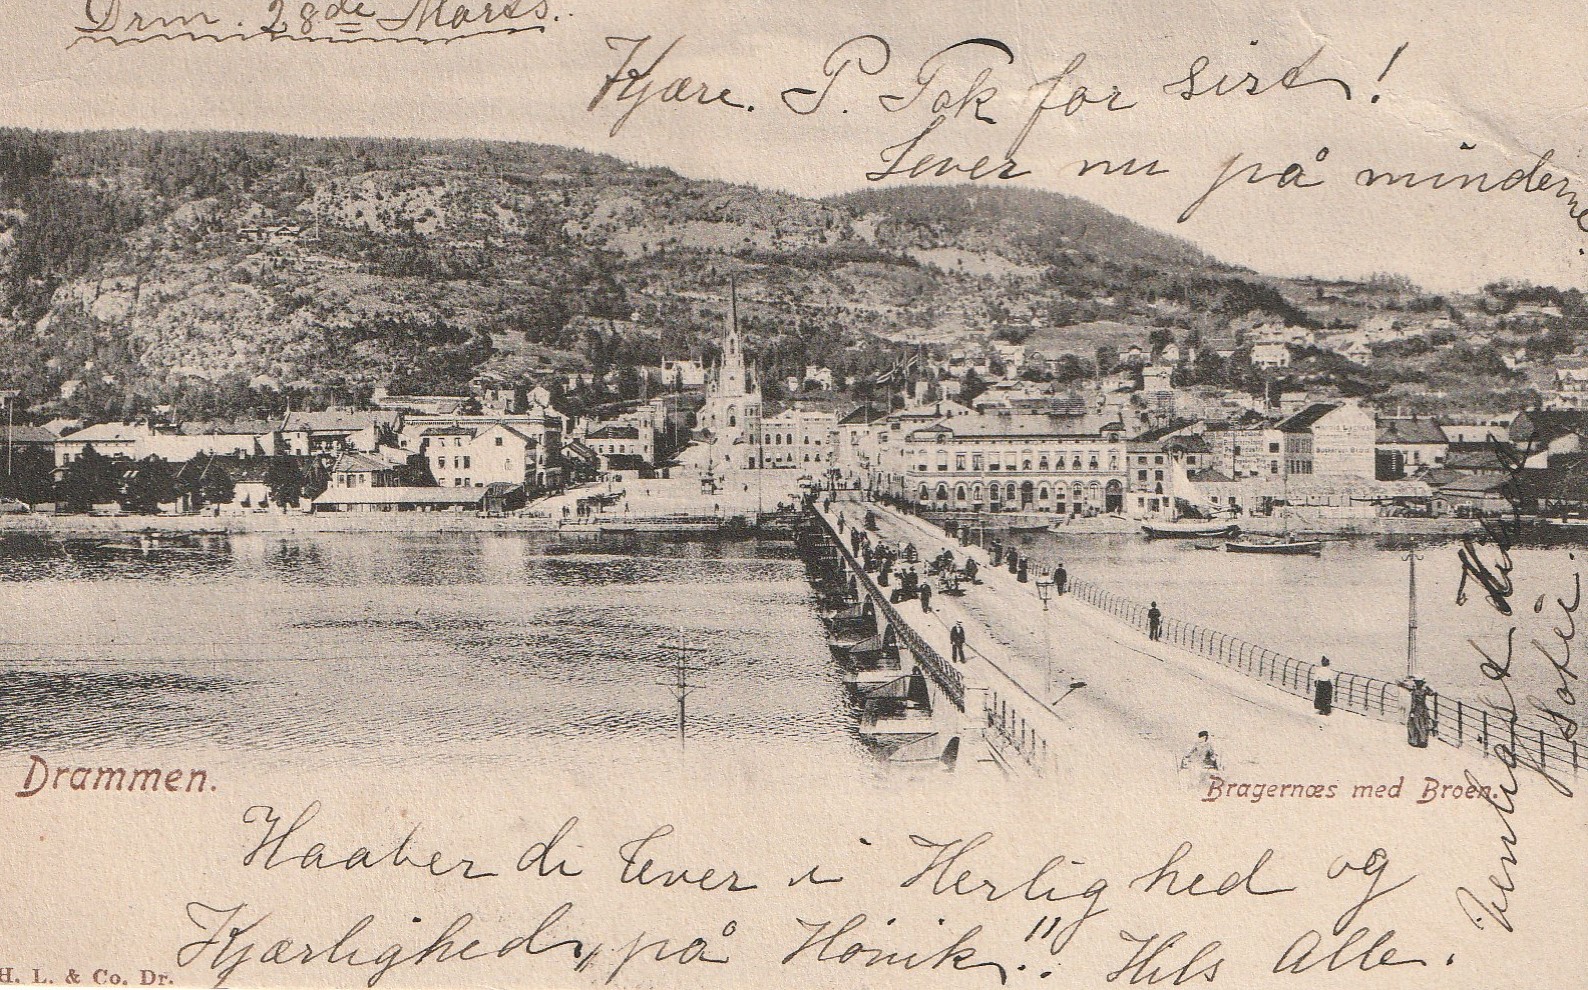 Drm. 28de Marts.
Kjære. P. Tak for sist!
Lever nu på minderne.
Drammen.
Bragernæs med Broen.
Haaber di lever i Herlighed og
Kjærlighed, på Hönik!! Hils Alle.
Venligst
Sofie.
H. L. & Co. Dr.